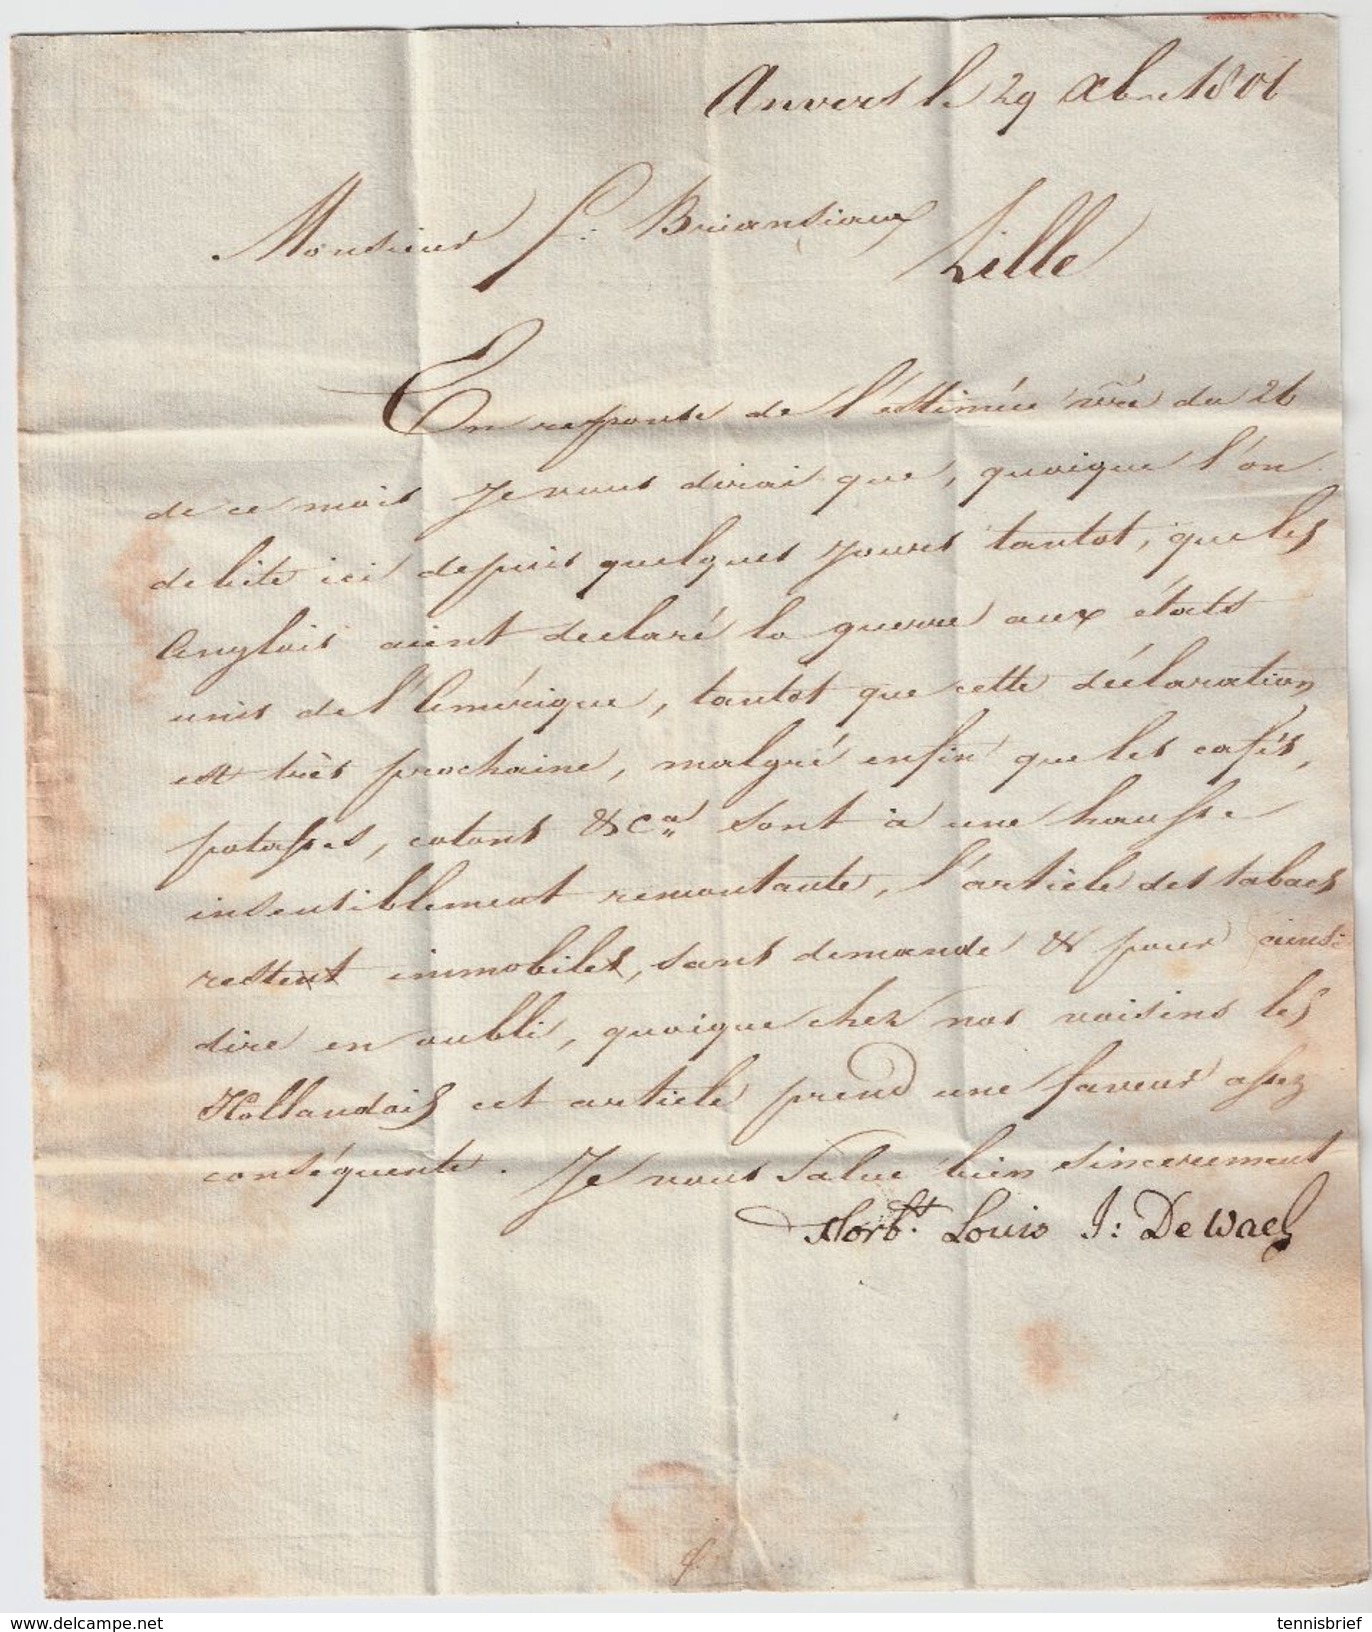 Anvers le 29 Xbre 1806
Monsieur f: Briansiaux
Lille
En reponse de l'estimée vre du 26
de ce mois Je vous dirai que, quoique l'on
debite ici depuis quelques Jours tantot, que les
Anglois aient declaré la guerre aux états
unis de l'Amérique, tantot que cette déclaration
est très prochaine, malgré enfin que les cafés,
potasses, cotons &ca sont à une hausse
insensiblement remontante, l'article des tabacs
restent immobiles, sans demande & pour ainsi
dire en oubli, quoique chez nos voisins les
Hollandois cet article prend une faveur assez
conséquente. Je vous Salue bien sincerement
Norbt. Louis J: De Wael
delcampe.net
tennisbrief